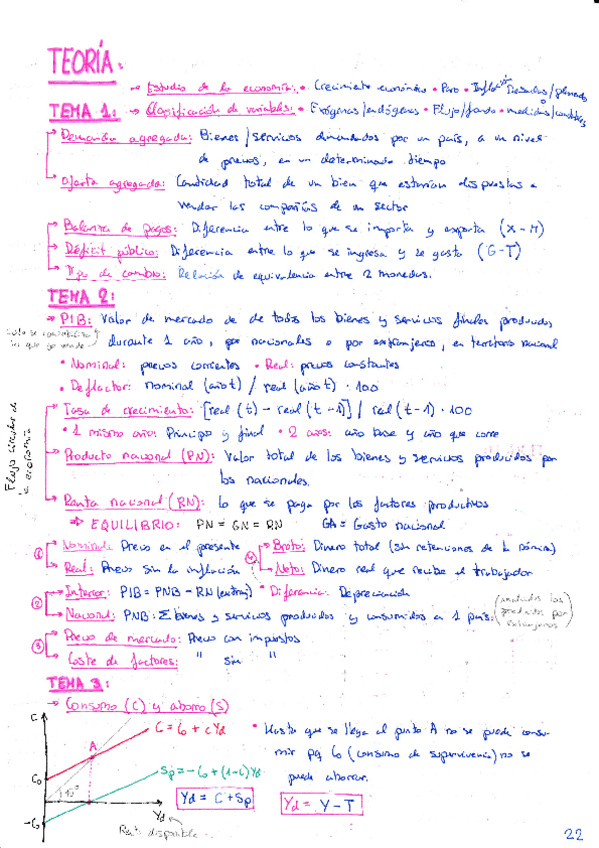 TEORÍA:
→ Estudio de la economía: • Crecimiento económico • Paro • Inflación
TEMA 1: → Clasificación de variables: • Exógenas/endógenas • Flujo/fondo
→ Demanda agregada: Bienes/servicios demandados por un país, a un nivel
de precios, en un determinado tiempo
→ Oferta agregada: Cantidad total de un bien que estarían dispuestas a
vender las compañías de un sector
→ Balanza de pagos: Diferencia entre lo que se importa y exporta (X-M)
→ Déficit público: Diferencia entre lo que se ingresa y se gasta (G-T)
→ Tipo de cambio: Relación de equivalencia entre 2 monedas.
TEMA 2:
→ PIB: Valor de mercado de de todos los bienes y servicios finales producidos
durante 1 año, por nacionales o por extranjeros, en territorio nacional
• Nominal: precios corrientes • Real: precios constantes
• Deflactor: nominal (año t) / real (año t) · 100
Flujo circular de
la economía
→ Tasa de crecimiento: [real (t) - real (t-1)] / real (t-1) · 100
• 1 mismo año: Principio y final • 2 años: año base y año que corre
→ Producto nacional (PN): Valor total de los bienes y servicios producidos por
los nacionales.
→ Renta nacional (RN): lo que se paga por los factores productivos
⇒ EQUILIBRIO: PN = GN = RN GN = Gasto nacional
① Nominal: Precio en el presente
→ Real: Precio sin la inflación
④ Bruto: Dinero total (sin retenciones de la nómina)
→ Neto: Dinero real que recibe el trabajador
② → Interior: PIB = PNB - RN (extranj) • Diferencia: Depreciación
→ Nacional: PNB: Σ bienes y servicios producidos y consumidos en 1 país.
③ → Precio de mercado: Precio con impuestos
→ Coste de factores: " sin "
TEMA 3:
→ Consumo (C) y ahorro (S)
C
C = C0 + cYd
A
C0
45°
Sp = -C0 + (1-c)Yd
-C0
Yd
Renta disponible
• Hasta que se llega al punto A no se puede consu-
mir pq C0 (consumo de supervivencia) no se
puede ahorrar.
Yd = C + Sp
Yd = Y - T
22